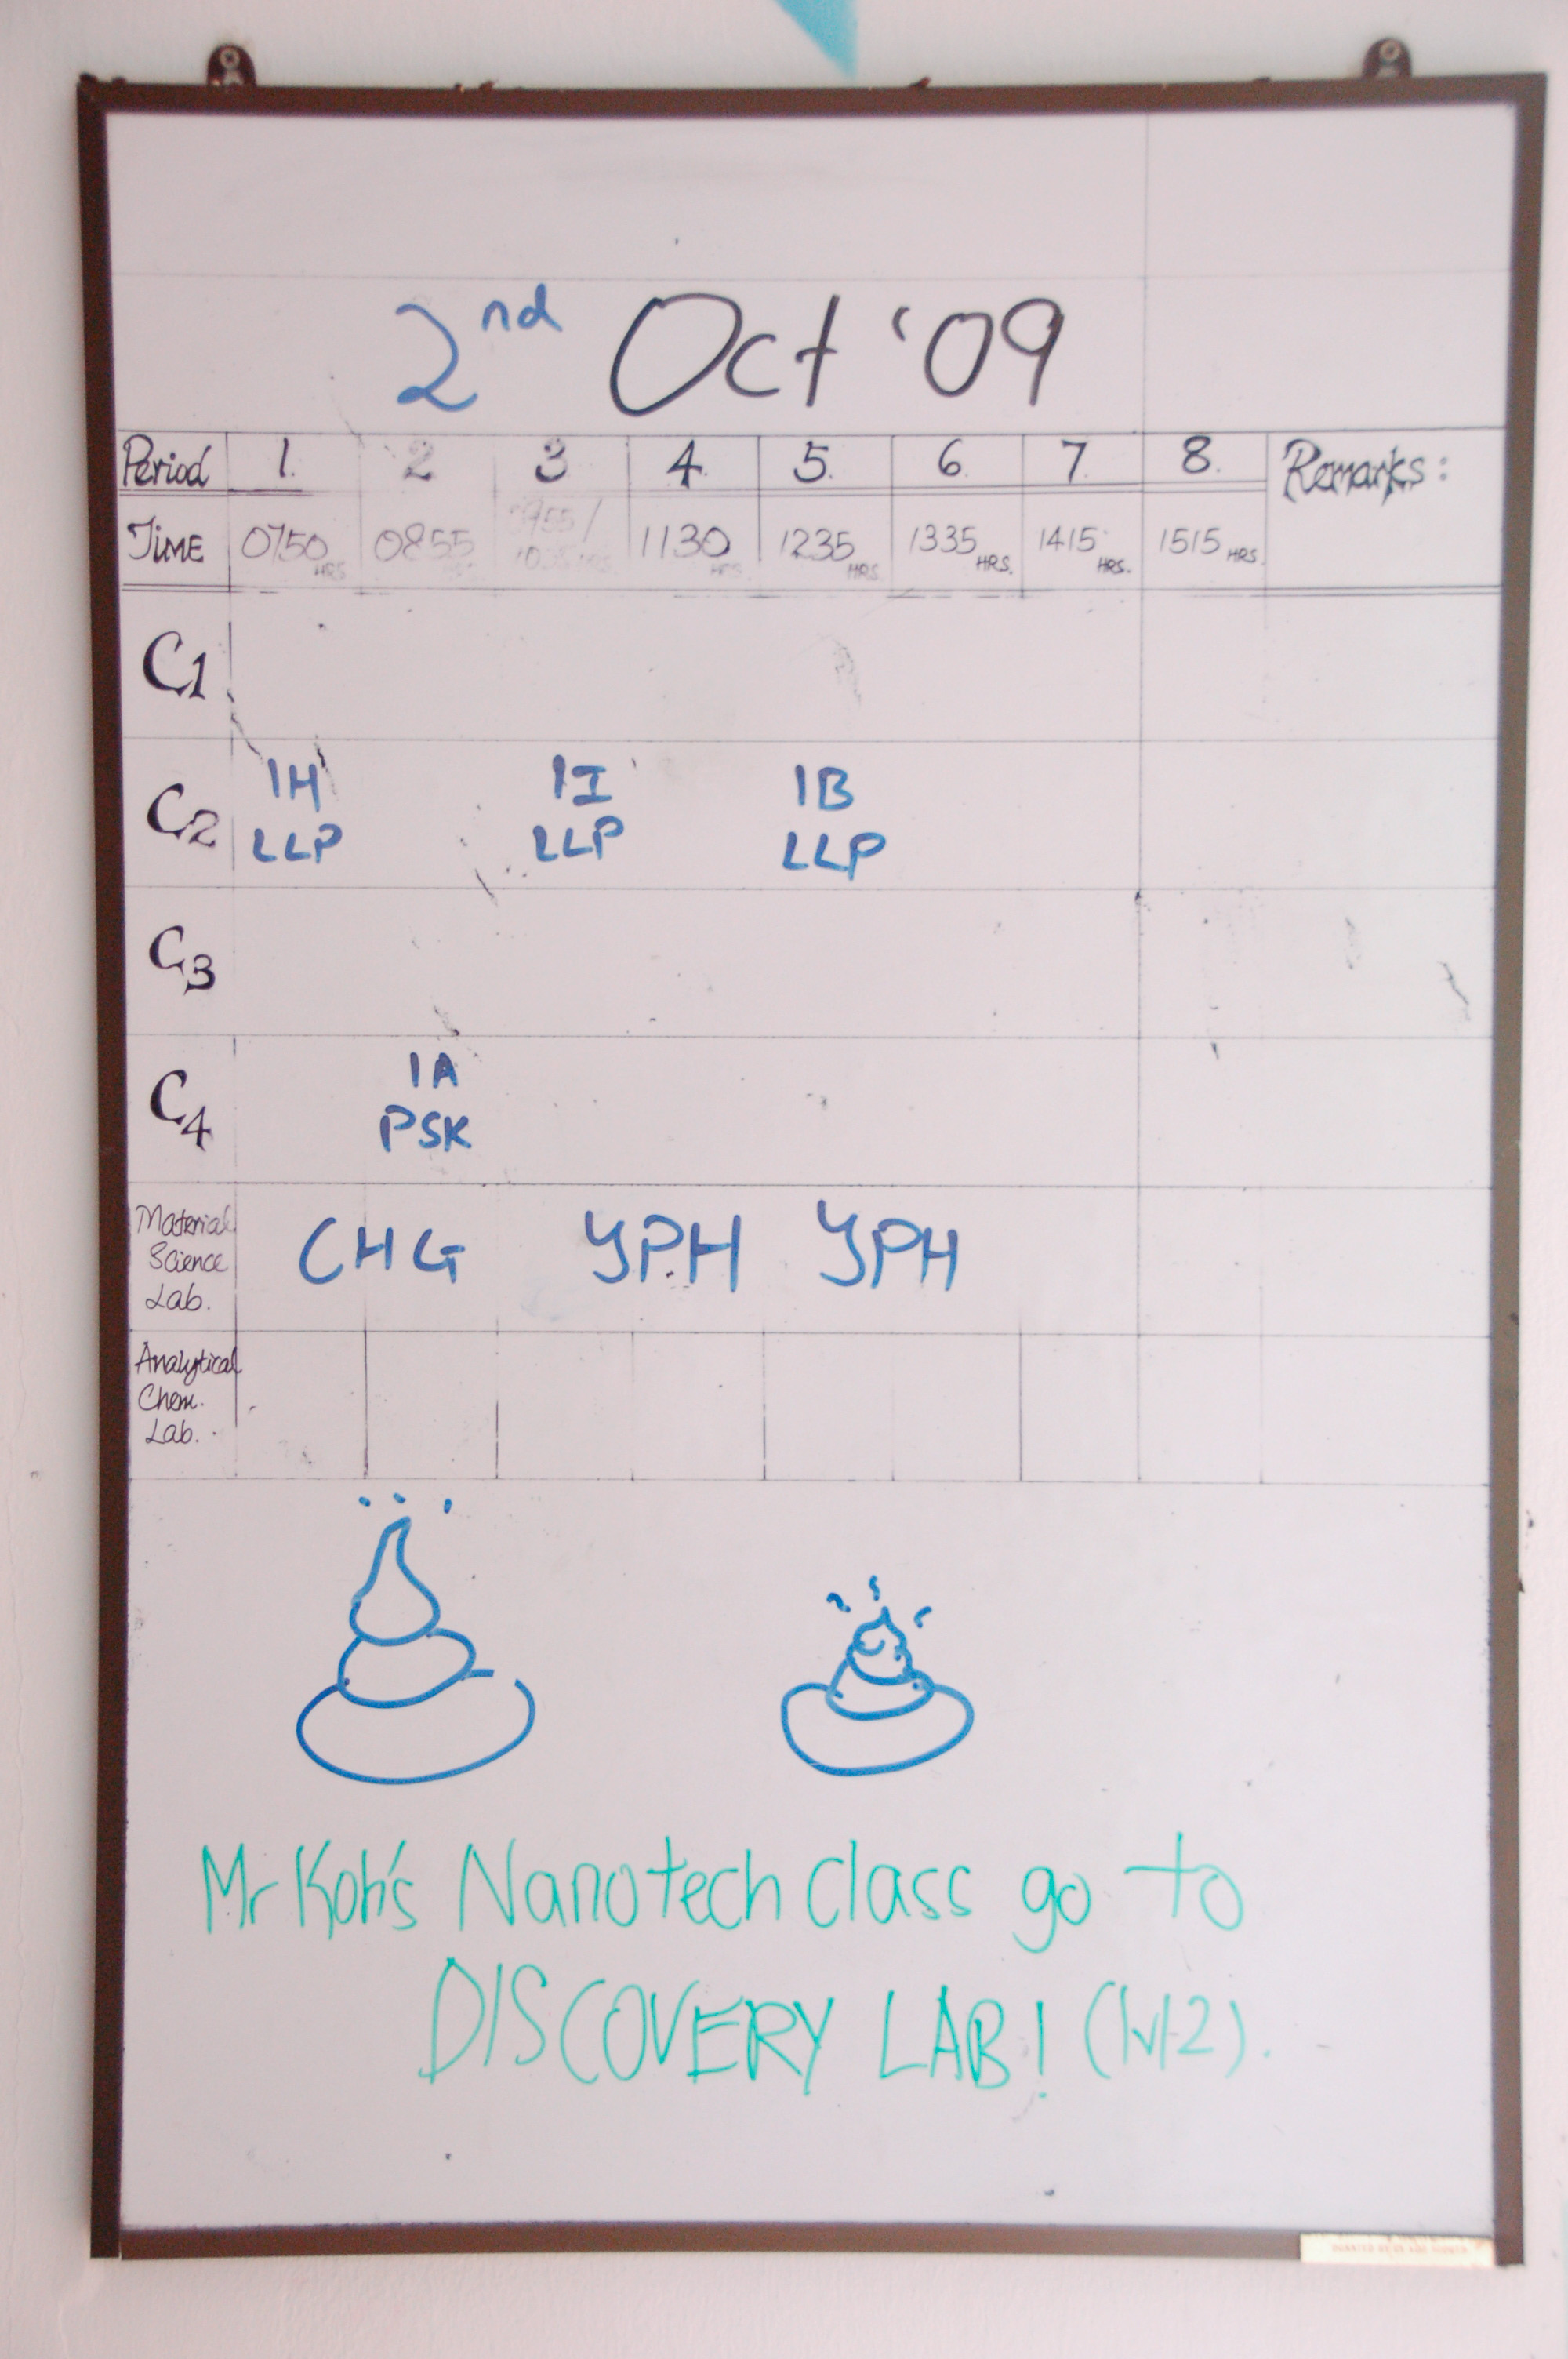 2nd Oct '09
Period 1. 2 3 4. 5. 6. 7. 8. Remarks:
TIME 0750 HRS 0855 1130 HRS. 1235 HRS. 1335 HRS. 1415 HRS. 1515 HRS.
C1
C2 1H 1I 1B
LLP LLP LLP
C3
C4 1A
PSK
Material Science Lab. CHG YPH YPH
Analytical Chem. Lab.
Mr Koh's Nanotech class go to
DISCOVERY LAB! (lvl 2).